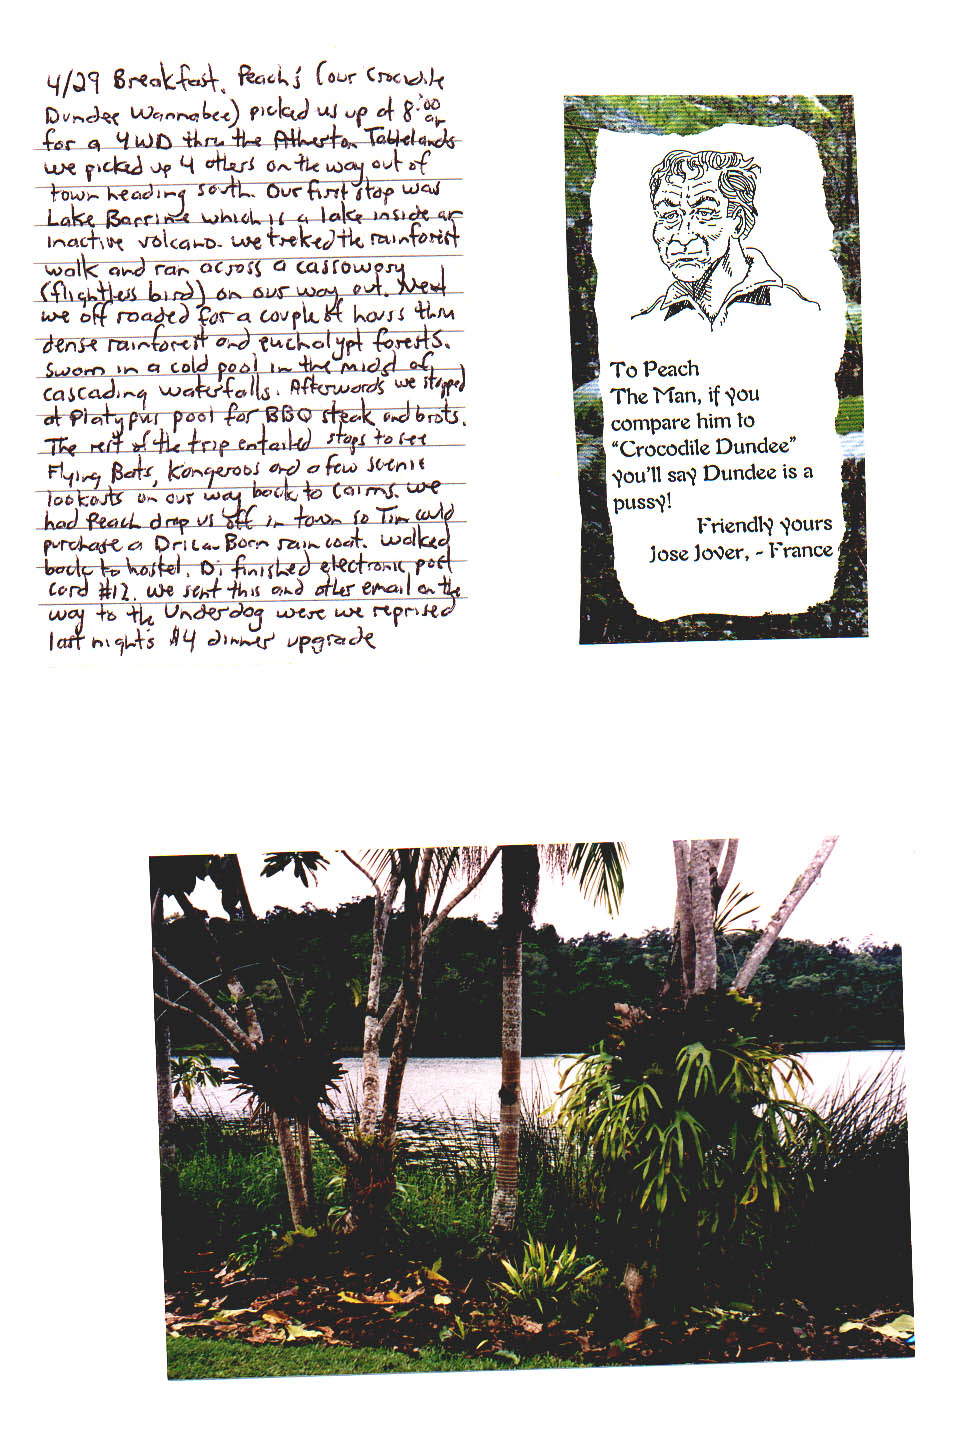 4/29 Breakfast. Peach's (our Crocodile
Dundee Wannabee) picked us up at 8:00 ar
for a 4WD thru the Atherton Tablelands
we picked up 4 others on the way out of
town heading south. Our first stop was
Lake Barrine which is a lake inside an
inactive volcano. we treked the rainforest
walk and ran across a cassowery
(flightless bird) on our way out. Next
we off roaded for a couple of hours thru
dense rainforest and eucholypt forests.
Swam in a cold pool in the midst of
cascading waterfalls. Afterwards we stopped
at Platypus pool for BBQ steak and brots.
The rest of the trip entailed stops to see
Flying Bats, Kangeroos and a few scenic
lookouts on our way back to Cairns. we
had Peach drop us off in town so Tim could
purchase a Driza Born rain coat. Walked
back to hostel. Di finished electronic post
card #12. we sent this and other email on the
way to the Underdog were we reprised
last night's $4 dinner upgrade
To Peach
The Man, if you
compare him to
"Crocodile Dundee"
you'll say Dundee is a
pussy!
Friendly yours
Jose Jover, - France